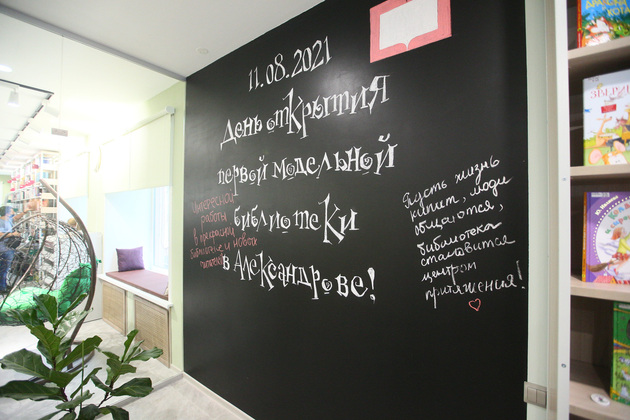 11.08.2021
День открытия
первой модельной
библиотеки
в Александрове!
Интересной
работы
в прекрасной
библиотеке и новых
читателей
Пусть жизнь
кипит, люди
общаются,
библиотека
становится
центром
притяжения!
ЗВЕРИ